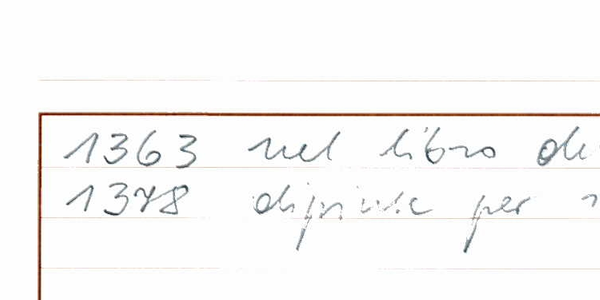 1363 nel libro de
1378 dipinse per